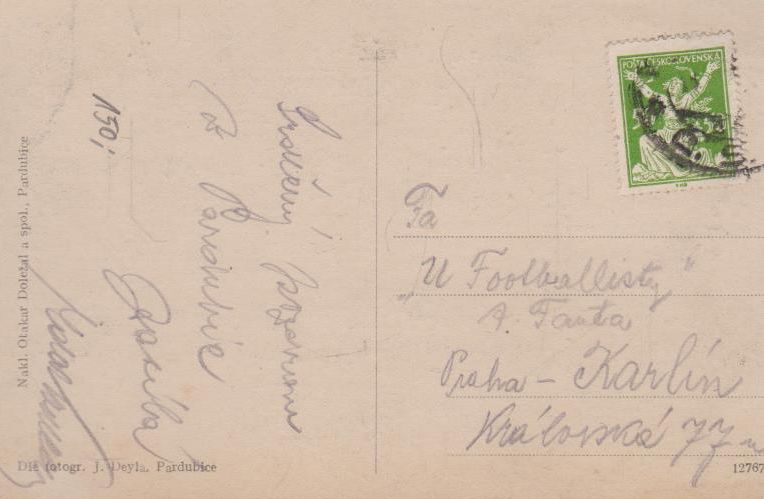 Srdečný pozdrav
z Pardubic
150;
Nakl. Otakar Doležal a spol., Pardubice
Dle fotogr. J. Deyla, Pardubice
POŠTA ČESKOSLOVENSKÁ
Fa
„U Footballisty"
A. Fanta
Praha - Karlín
Královská 77
12767